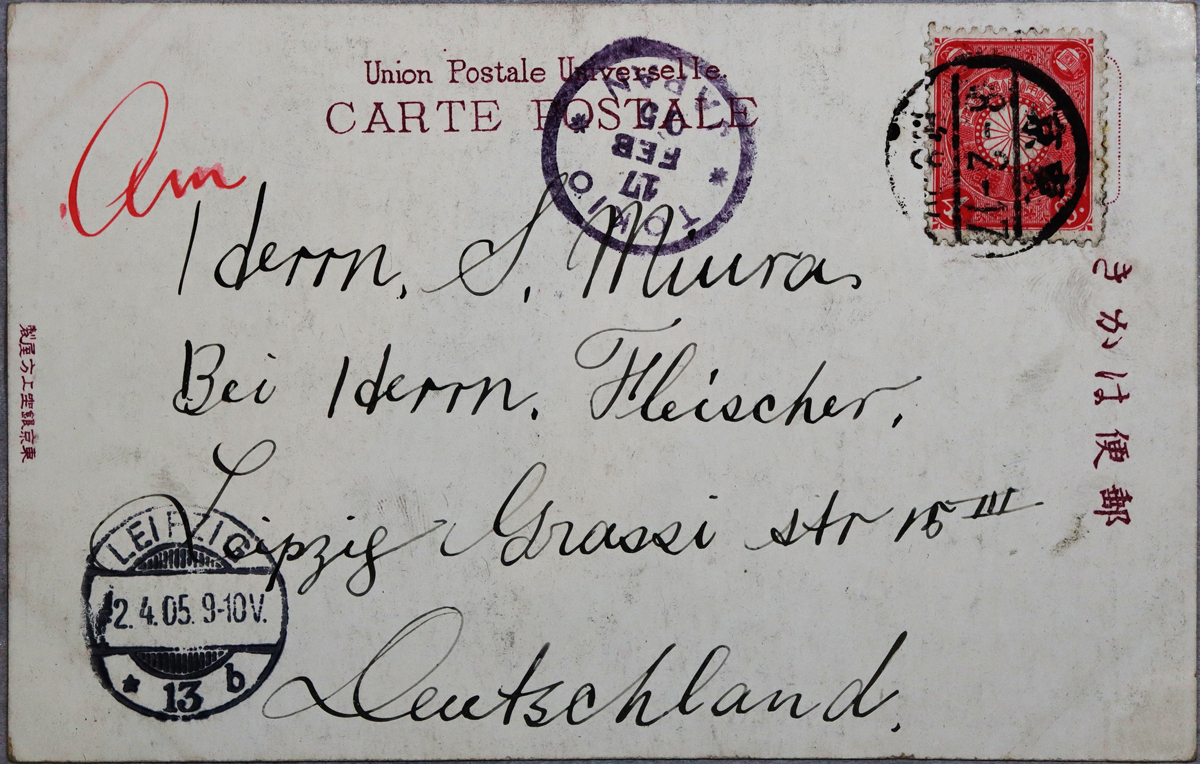 Union Postale Universelle.
CARTE POSTALE
Am
TOKIO
17
FEB
05
JAPAN
東京
38-2-17
Herrn. S. Miura.
Bei Herrn. Fleischer,
Leipzig Grassi str 15 III
Deutschland.
LEIPZIG
2.4.05.9-10V.
* 13 b
きかは便郵
製屋方上座銀京東